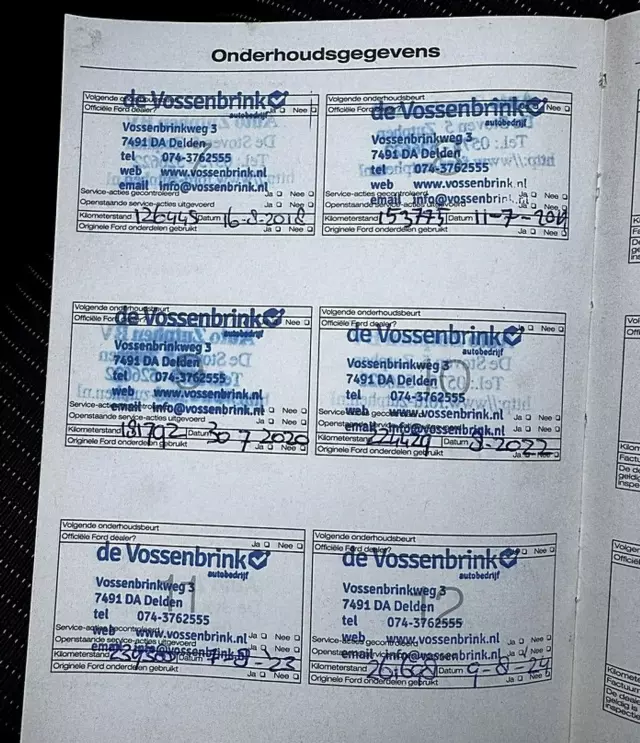 Onderhoudsgegevens
Volgende onderhoudsbeurt
Officiële Ford dealer? Nee
de Vossenbrink
autobedrijf
Vossenbrinkweg 3
7491 DA Delden
tel 074-3762555
web www.vossenbrink.nl
email info@vossenbrink.nl
Service-acties gecontroleerd Ja Nee
Openstaande service-acties uitgevoerd Ja Nee
Kilometerstand 126448 Datum 16-8-2018
Originele Ford onderdelen gebruikt Ja Nee
Volgende onderhoudsbeurt
Officiële Ford dealer? Nee
de Vossenbrink
autobedrijf
Vossenbrinkweg 3
7491 DA Delden
tel 074-3762555
web www.vossenbrink.nl
email info@vossenbrink.nl
Service-acties Ja Nee
Openstaande service-acties uitgevoerd Ja Nee
Kilometerstand 153775 Datum 11-7-
Originele Ford onderdelen gebruikt Ja Nee
Volgende onderhoudsbeurt
Officiële Ford Nee
de Vossenbrink
autobedrijf
Vossenbrinkweg 3
7491 DA Delden
tel 074-3762555
web www.vossenbrink.nl
email info@vossenbrink.nl
Service-acties Nee
Openstaande service-acties uitgevoerd Ja Nee
Kilometerstand 181792 Datum 30 7 2020
Originele Ford onderdelen gebruikt Ja Nee
Volgende onderhoudsbeurt
Officiële Ford dealer?
de Vossenbrink
autobedrijf
Vossenbrinkweg 3
7491 DA Delden
tel 074-3762555
web www.vossenbrink.nl
email info@vossenbrink.nl
Service-acties gecontroleerd Ja Nee
Openstaande service-acties Ja Nee
Kilometerstand Datum 8-2022
Originele Ford onderdelen gebruikt Ja Nee
Volgende onderhoudsbeurt
Officiële Ford dealer? Ja Nee
de Vossenbrink
autobedrijf
11
Vossenbrinkweg 3
7491 DA Delden
tel 074-3762555
web www.vossenbrink.nl
email info@vossenbrink.nl
Service-acties gecontroleerd Ja Nee
Openstaande service-acties uitgevoerd Ja Nee
Kilometerstand Datum
Originele Ford onderdelen gebruikt Ja Nee
Volgende onderhoudsbeurt
Officiële Ford dealer? Ja Nee
de Vossenbrink
autobedrijf
12
Vossenbrinkweg 3
7491 DA Delden
tel 074-3762555
web www.vossenbrink.nl
email info@vossenbrink.nl
Service-acties gecontroleerd Ja Nee
Openstaande service-acties Ja Nee
Kilometerstand 261608 Datum 9-8-24
Originele Ford onderdelen gebruikt Ja Nee